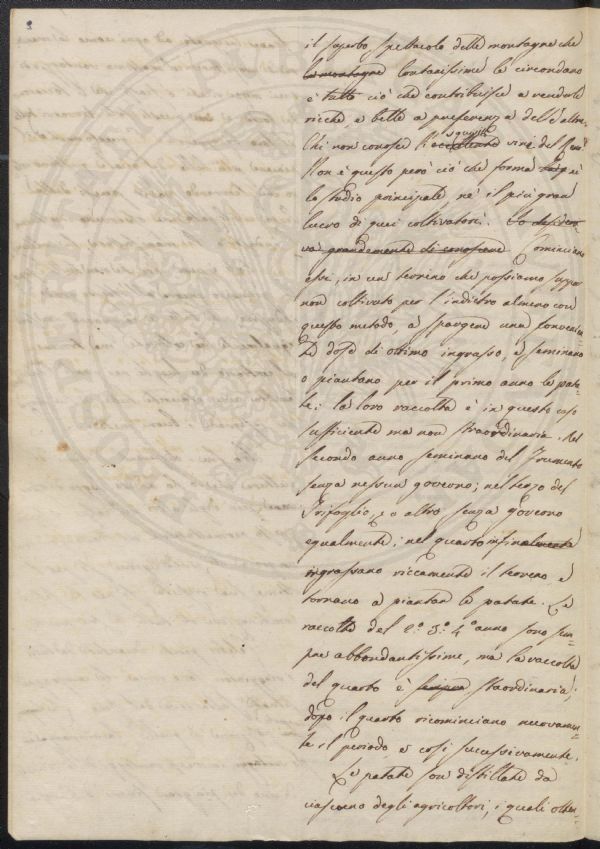 2
il superbo spettacolo delle montagne che
le montagne lontanissime le circondano
è tutto ciò che contribuisce a renderle
ricche, e belle a preferenza dell'altre.
Chi non conosce l'eccellente squisito vino del
Non è questo però ciò che forma nè
lo studio principale, nè il più gran
lucro di quei coltivatori. Io deside-
va grandemente di conoscere Cominciano
essi, in un terreno che possiamo suppor
non coltivato per l'indietro almeno con
questo metodo, a spargere una convenien-
te dose di ottimo ingrasso, e seminano
o piantano per il primo anno le pata-
te: la loro raccolta è in questo caso
sufficiente ma non straordinaria. Nel
secondo anno seminano del Frumento
senza nessun governo; nel terzo del
Trifoglio, o altro senza governo
egualmente; nel quarto finalmente
ingrassano riccamente il terreno e
tornano a piantar le patate. Le
raccolte del 2.° 3.° 4.° anno sono sem-
pre abbondantissime, ma la raccolta
del quarto è sempre straordinaria;
dopo il quarto ricominciano nuovamen-
te il periodo, e così successivamente.
Le patate son distillate da
ciascuno degli agricoltori, i quali otten-